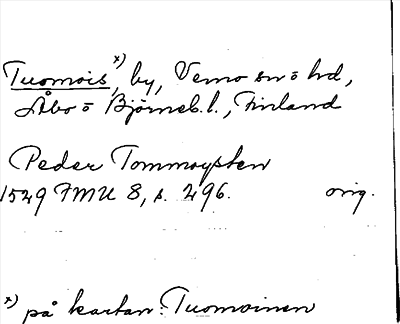 Tuomois x), by, Vemo sn o hd,
Åbo o Björneb. l., Finland
Peder Tommoysten
1549 FMU 8, s. 296. orig.
x) på kartan: Tuomoinen